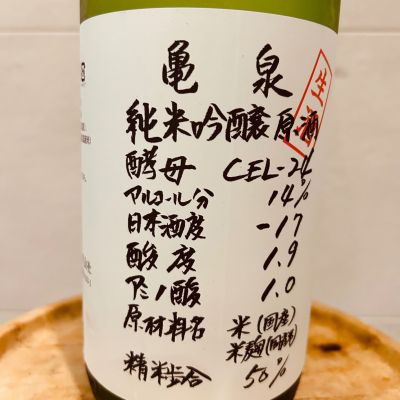 亀泉
生酒
純米吟醸原酒
酵母 CEL-24
アルコール分 14%
日本酒度 -17
酸度 1.9
アミノ酸 1.0
原材料名 米(国産)
米麹(国産米)
精米歩合 50%